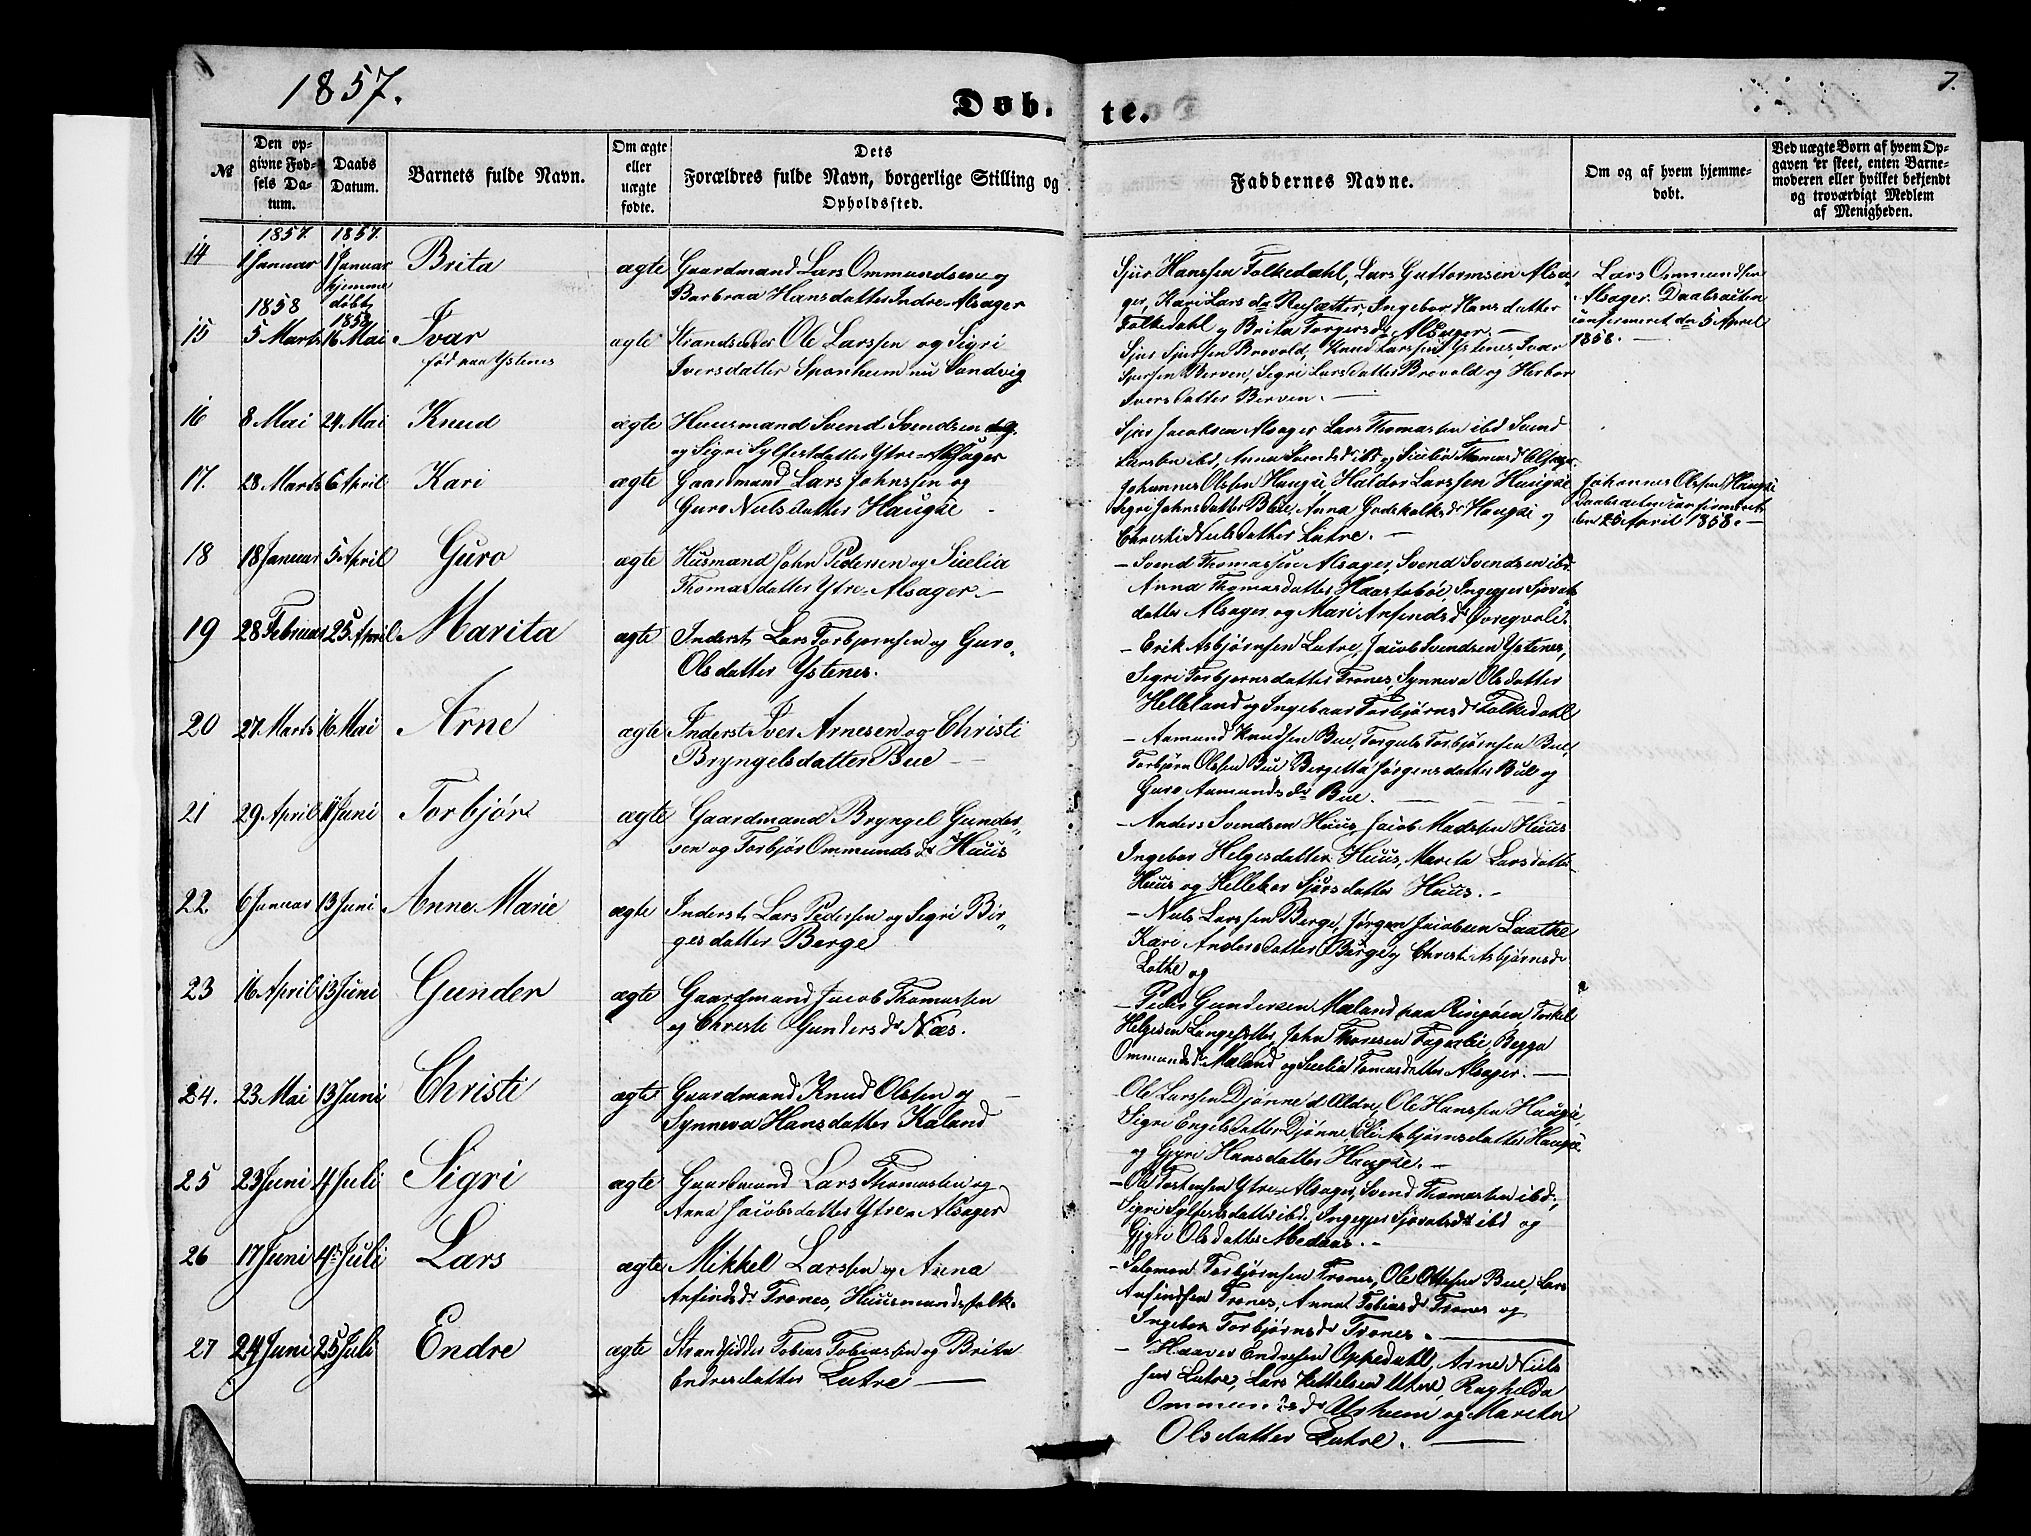 1857.
7.
Døb. te.
№
Den op-
givne Fød-
sels Da-
tum.
Daabs
Datum.
Barnets fulde Navn.
Om ægte
eller
uægte
fødte.
Dets
Forældres fulde Navn, borgerlige Stilling og
Opholdssted.
Faddernes Navne.
Om og af hvem hjemme-
døbt.
Ved uægte Børn af hvem Op-
gaven er skeet, enten Barne-
moderen eller hvilket bekjendt
og troværdigt Medlem
af Menigheden.
1857. 1857.
14 1 Januar 1 Januar Brita ægte Gaardmand Lars Ommundsen og
hjemme
døbt
Barbraa Hansdatter Indre Alsager
Sjur Hanssen Folkedahl, Lars Guttormsen Alsa-
ger, Kari Lars dr Røsætter, Ingebor Hans datter
Folkedahl og Brita Torgersdr Alsager. —
Lars Ommundsen
Alsager. Daabsacten
confirmeret dn 5 April
1858. —
1858 1858
15 5 Marts 16 Mai Ivar ægte Strandsidder Ole Larssen og Sigri
fød paa Ystenes
Iversdatter Sponheim nu Sandvig
Sjur Sjursen Brevold, Knud Larssen Ystenes, Ivar
Sjursen Berven, Sigri Larsdatter Brevold og Herbor
Iversdatter Berven. —
16 8 Mai 24 Mai Knud ægte Huusmand Svend Svendsen
og Sigri Sylfestdatter Ytre Alsager
Sjur Jacobsen Alsager, Lars Thomassen ibd Svend
Larssen ibd, Anna Svendsd ibd og Sicilia Thomasd Alsager.
17. 28 Marts 6 April Kari ægte Gaardmand Lars Johnssen og
Guro Nielsdatter Haugse
Johannes Olssen Haugse, Haldor Larssen Haugse
Segri Johnsdatter Bue, Anna Godskalksdr Haugse og
Christi Nielsdatter Lutre. —
Johannes Olssen Haugse
Daabsacten confirmeret
den 25 April 1858. —
18 18 Januar 5 April Guro ægte Husmand John Pedersen og Sicelia
Thomasdatter Ytre Alsager —
— Svend Thomassen Alsager, Svend Svendsen ibd
Anna Thomasdatter Haastabøe, Ingegjer Sjovats
datter Alsager og Mari Anfindsdr Øvregvold.
19 28 Februar 25 April Marita ægte Inderst Lars Torbjørnsen og Guro
Olsdatter Ystenes.
— Erik Asbjørnsen Lutre, Jacob Svendsen Ystenes,
Sigri Torbjørnsdatter Trones, Synneva Olsdatter
Helleland og Ingebaar Torbjørnsdr Folkedahl
20 27 Marts 16 Mai Arne ægte Inderst Iver Arnesen og Christi
Bryngelsdatter Bue —
— Aamund Knudsen Bue, Torguls Torbjørnsen Bue,
Torbjørn Olssen Bue Bergetta Jørgensdatter Bue og
Guro Aamundsdr Bue. —
21 29 April 11 Juni Torbjør ægte Gaardmand Bryngel Gunder-
sen og Torbjør Ommundsdr Huus
— Anders Svendsen Huus, Jacob Madssen Huus
Ingebor Helgesdatter Huus, Marita Larsdatter
Huus og Hellebor Sjursdatter Huus. —
22 6 Januar 13 Juni Anne Marie ægte Inderst Lars Pedersen og Segri Bir-
gesdatter Berge
— Niels Larssen Berge, Jørgen Jacobsen Laathe
Kari Andersdatter Berge og Christi Asbjørnsdr
Lothe
23 16 April 13 Juni Gunder ægte Gaardmand Jacob Thomassen
og Christi Gundersdr Næs.
— Peder Gundersen Mæland paa Ringøen, Torkel
Helgesen Langesetter, John Thoresen Fagerlie, Begga
Ommundsdr Mæland og Sicilia Tomasdatter Alsager. —
24. 23 Mai 13 Juni Christi ægte Gaardmand Knud Olssen og
Synneva Hansdatter Kaland
Ole Larssen Djønne d Ældre, Ole Hanssen Haugse,
Sigri Engelsdatter Djønne, Eli Asbjørnsdatter Haugse
og Gjyri Hansdatter Haugse. —
25 23 Juni 4 Juli Sigri ægte Gaardmand Lars Thomassen og
Anna Jacobsdatter Ytre Alsager
— Ole Torstensen Ytre Alsager, Svend Thomassen ibd,
Sigri Sylfestsdatter ibd, Ingegjer Sjovatsdr ibd og
Gjyri Olsdatter Medaas. —
26 17 Juni 4 Juli Lars ægte Mikkel Larssen og Anna
Anfindsdr Trones, Huusmandsfolk.
— Salomon Torbjørnsen Trones, Ole Ottesen Bue, Lars
Anfindsen Trones, Anna Tobiasdr Trones og
Ingebor Torbjørnsdr Trones. —
27 24 Juni 25 Juli Endre ægte Strandsidder Tobias Tobiassen og Brita
Endresdatter Lutre —
— Haaver Endresen Oppedahl, Arne Niels
sen Lutre, Lars Kittelsen Utne, Raghilda
Ommundsdr Alsheim og Marita
Olsdatter Lutre. —